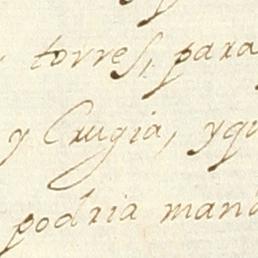 torres, para
y Crugia, yqu
podria mand